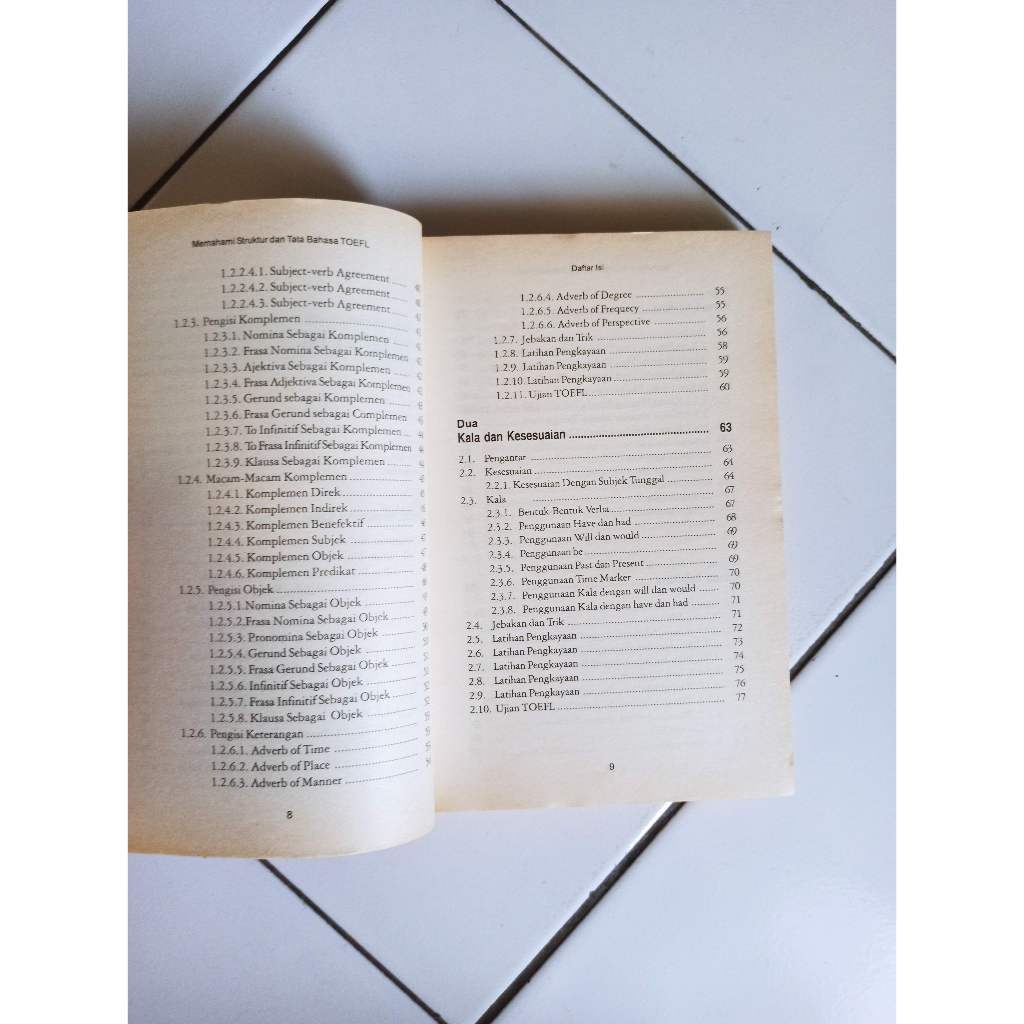 Memahami Struktur dan Tata Bahasa TOEFL
1.2.2.4.1. Subject-verb Agreement
1.2.2.4.2. Subject-verb Agreement
1.2.2.4.3. Subject-verb Agreement
1.2.3. Pengisi Komplemen
1.2.3.1. Nomina Sebagai Komplemen
1.2.3.2. Frasa Nomina Sebagai Komplemen
1.2.3.3. Ajektiva Sebagai Komplemen
1.2.3.4. Frasa Adjektiva Sebagai Komplemen
1.2.3.5. Gerund sebagai Komplemen
1.2.3.6. Frasa Gerund sebagai Complemen
1.2.3.7. To Infinitif Sebagai Komplemen
1.2.3.8. To Frasa Infinitif Sebagai Komplemen
1.2.3.9. Klausa Sebagai Komplemen
1.2.4. Macam-Macam Komplemen
1.2.4.1. Komplemen Direk
1.2.4.2. Komplemen Indirek
1.2.4.3. Komplemen Benefektif
1.2.4.4. Komplemen Subjek
1.2.4.5. Komplemen Objek
1.2.4.6. Komplemen Predikat
1.2.5. Pengisi Objek
1.2.5.1. Nomina Sebagai Objek
1.2.5.2.Frasa Nomina Sebagai Objek
1.2.5.3. Pronomina Sebagai Objek
1.2.5.4. Gerund Sebagai Objek
1.2.5.5. Frasa Gerund Sebagai Objek
1.2.5.6. Infinitif Sebagai Objek
1.2.5.7. Frasa Infinitif Sebagai Objek
1.2.5.8. Klausa Sebagai Objek
1.2.6. Pengisi Keterangan
1.2.6.1. Adverb of Time
1.2.6.2. Adverb of Place
1.2.6.3. Adverb of Manner
8
Daftar Isi
1.2.6.4. Adverb of Degree 55
1.2.6.5. Adverb of Frequecy 55
1.2.6.6. Adverb of Perspective 56
1.2.7. Jebakan dan Trik 56
1.2.8. Latihan Pengkayaan 58
1.2.9. Latihan Pengkayaan 59
1.2.10. Latihan Pengkayaan 59
1.2.11. Ujian TOEFL 60
Dua
Kala dan Kesesuaian 63
2.1. Pengantar 63
2.2. Kesesuaian 64
2.2.1. Kesesuaian Dengan Subjek Tunggal 64
2.3. Kala 67
2.3.1. Bentuk-Bentuk Verba 67
2.3.2. Penggunaan Have dan had 68
2.3.3. Penggunaan Will dan would 69
2.3.4. Penggunaan be 69
2.3.5. Penggunaan Past dan Present 69
2.3.6. Penggunaan Time Marker 70
2.3.7. Penggunaan Kala dengan will dan would 70
2.3.8. Penggunaan Kala dengan have dan had 71
2.4. Jebakan dan Trik 71
2.5. Latihan Pengkayaan 72
2.6. Latihan Pengkayaan 73
2.7. Latihan Pengkayaan 74
2.8. Latihan Pengkayaan 75
2.9. Latihan Pengkayaan 76
2.10. Ujian TOEFL 77
9